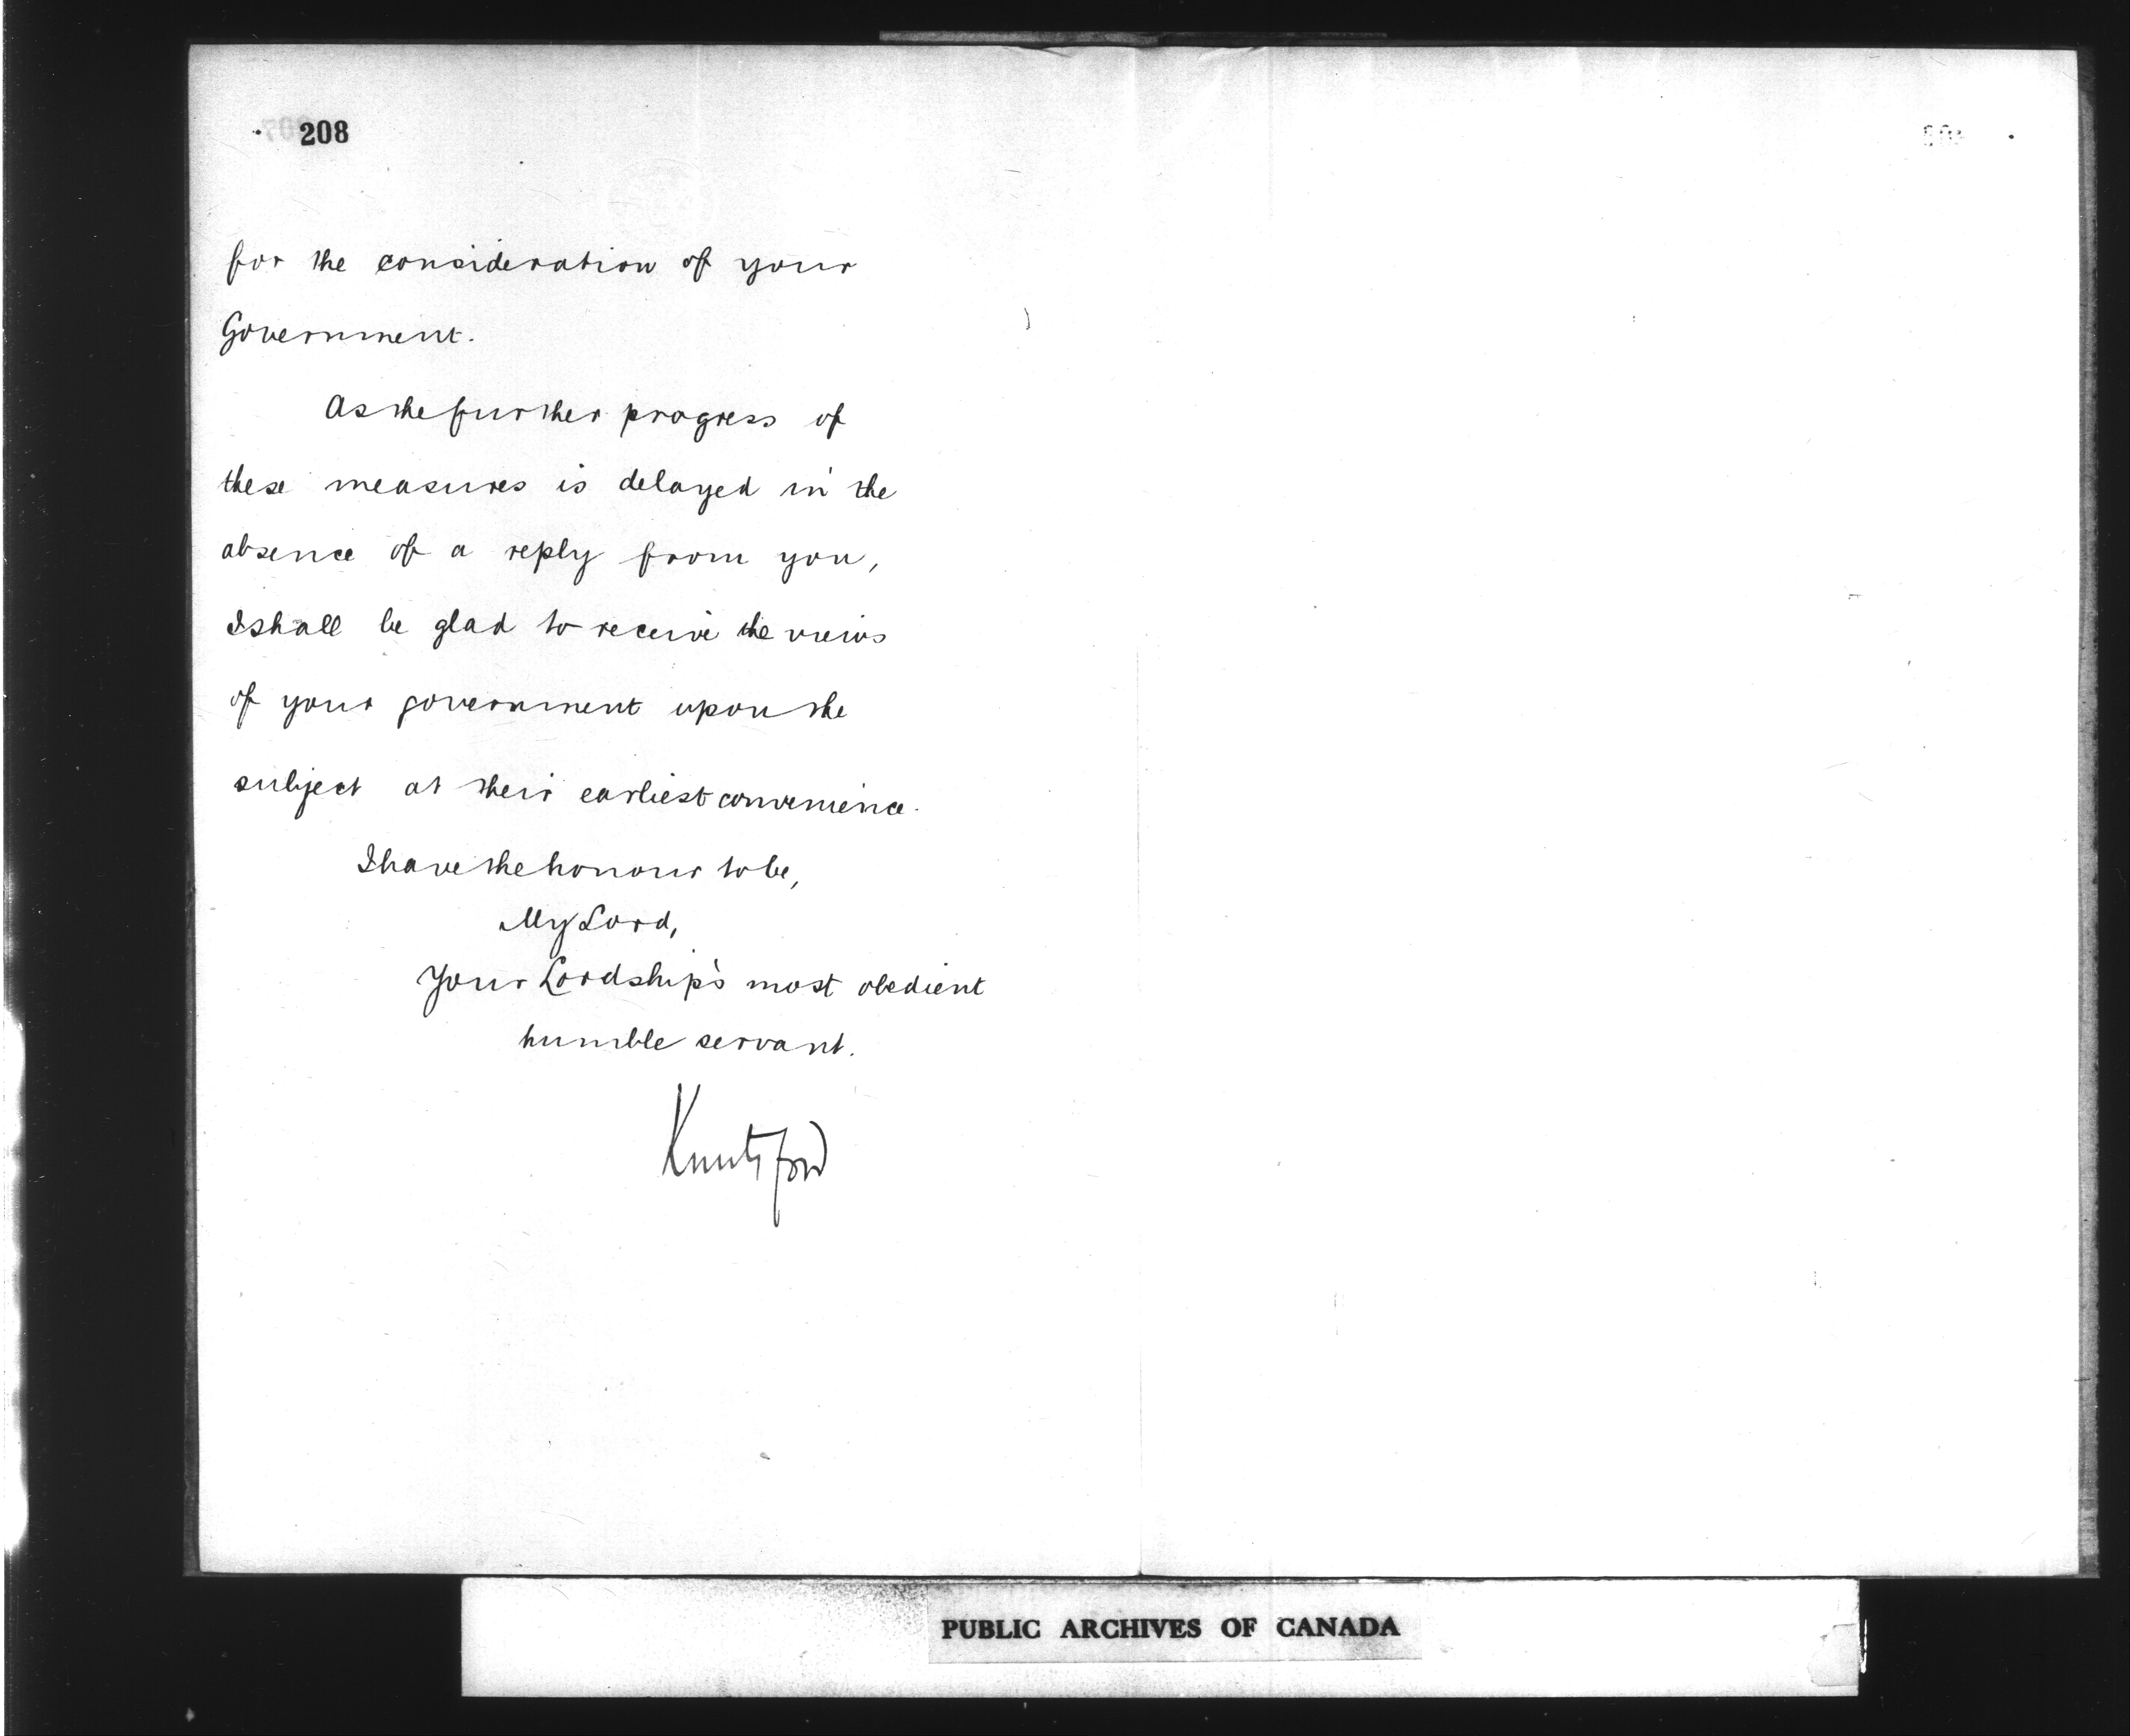 208
for the consideration of your
Government.
As the further progress of
these measures is delayed in the
absence of a reply from you,
I shall be glad to receive the views
of your government upon the
subject at their earliest convenience.
I have the honour to be,
My Lord,
Your Lordship's most obedient
humble servant.
Knutsford
PUBLIC ARCHIVES OF CANADA